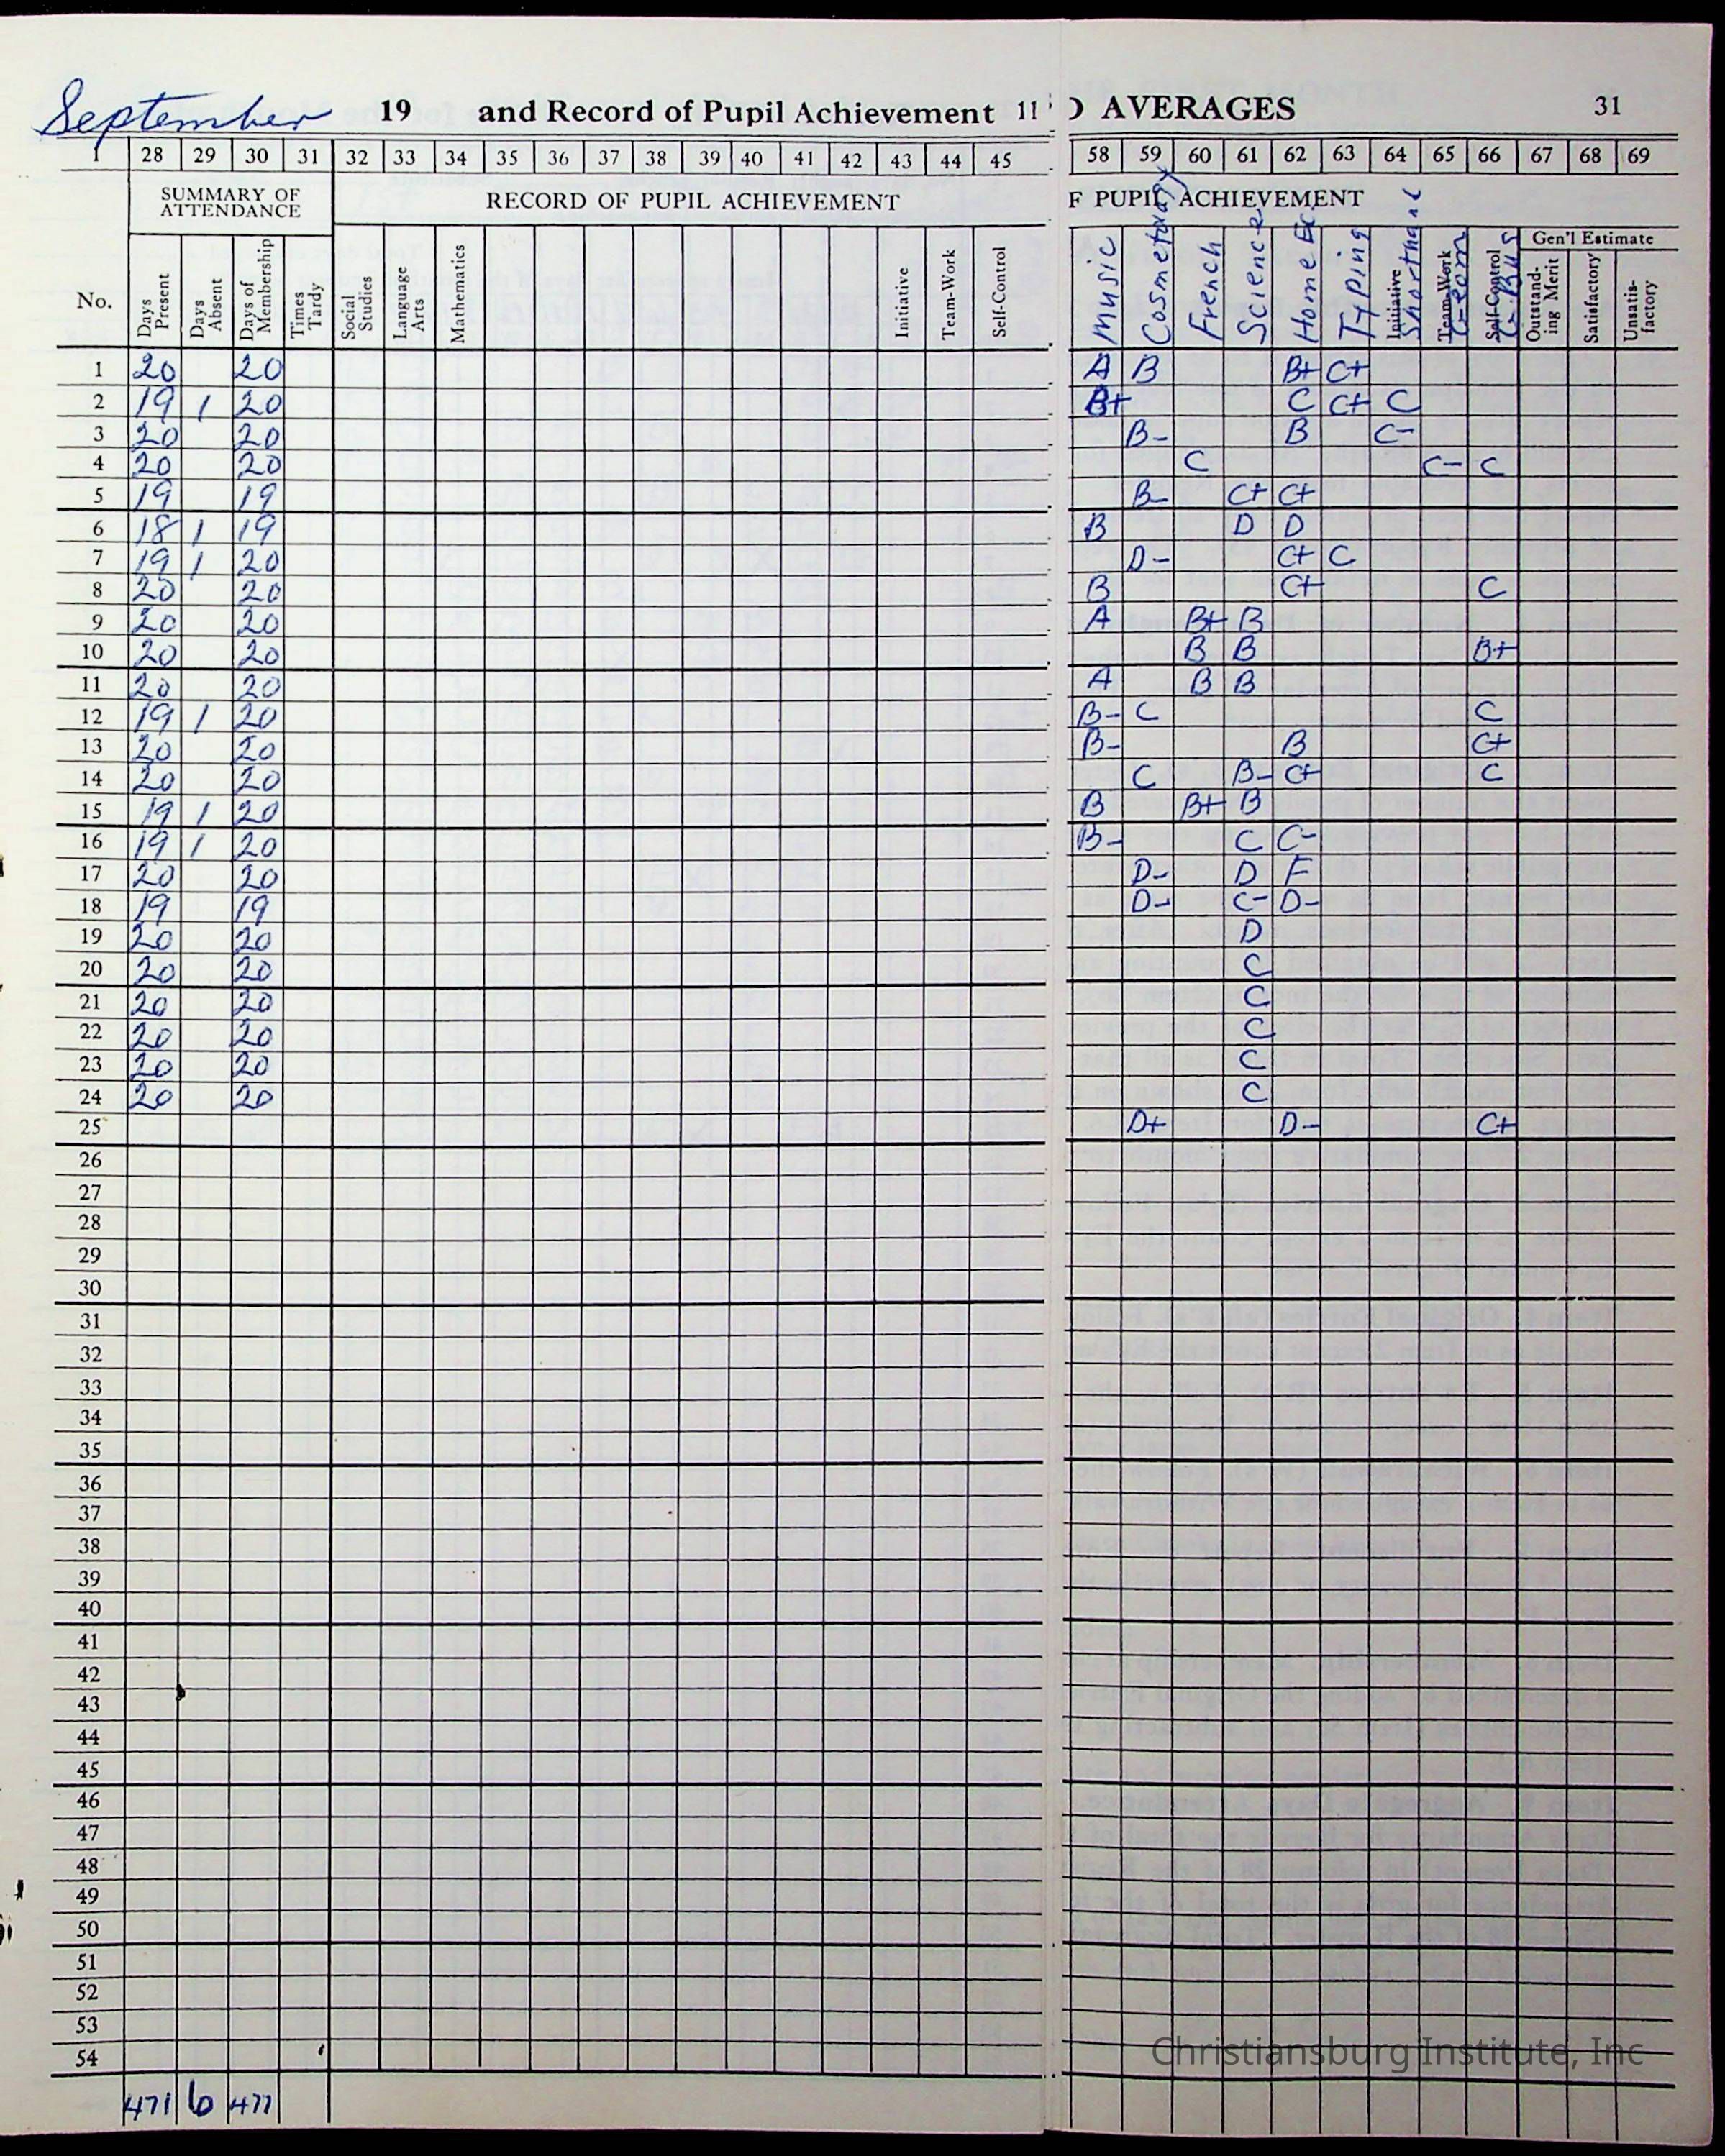 September 19 and Record of Pupil Achievement 11 AVERAGES 31
1 28 29 30 31 32 33 34 35 36 37 38 39 40 41 42 43 44 45 58 59 60 61 62 63 64 65 66 67 68 69
SUMMARY OF ATTENDANCE RECORD OF PUPIL ACHIEVEMENT F PUPIL ACHIEVEMENT
Gen'l Estimate
No. Days Present Days Absent Days of Membership Times Tardy Social Studies Language Arts Mathematics Initiative Team-Work Self-Control Music Cosmetology French Science Home Ec. Typing Initiative Shorthand Team-Work Geom Self-Control G-Bus Outstanding Merit Satisfactory Unsatisfactory
1 20 20 A B B+ C+
2 19 1 20 B+ C C+ C
3 20 20 B- B C-
4 20 20 C C- C
5 19 19 B- C+ C+
6 18 1 19 B D D
7 19 1 20 D- C+ C
8 20 20 B C+ C
9 20 20 A B+ B
10 20 20 B B B+
11 20 20 A B B
12 19 1 20 B- C C
13 20 20 B- B C+
14 20 20 C B- C+ C
15 19 1 20 B B+ B
16 19 1 20 B- C C-
17 20 20 D- D F
18 19 19 D- C- D-
19 20 20 D
20 20 20 C
21 20 20 C
22 20 20 C
23 20 20 C
24 20 20 C
25 D+ D- C+
26
27
28
29
30
31
32
33
34
35
36
37
38
39
40
41
42
43
44
45
46
47
48
49
50
51
52
53
54
471 6 477
Christiansburg Institute, Inc